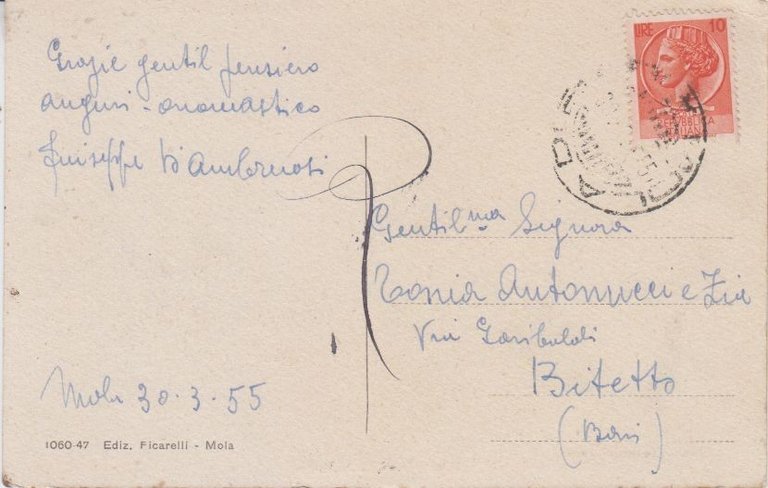 Grazie gentil pensiero
auguri - onomastico
Giuseppe D'Ambruosi
Mola 30.3.55
1060-47 Ediz. Ficarelli - Mola
LIRE 10
REPUBBLICA
Gentil.ma Signora
Tonia Antonucci e Zia
Via Garibaldi
Bitetto
(Bari)